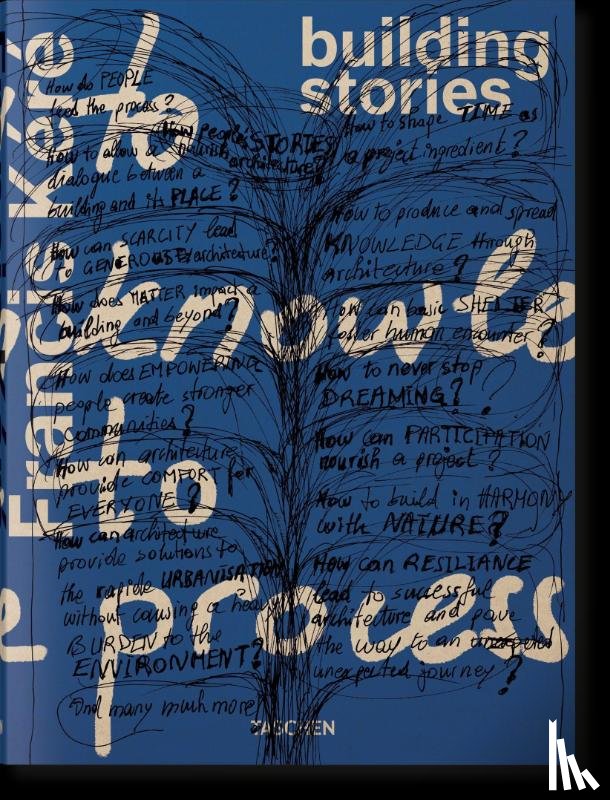 building
stories
Francis Kéré
How do PEOPLE
feed the process?
How people's STORIES
nourish
architecture?
How to shape TIME as
a project ingredient?
How to allow a
dialogue between a
building and its PLACE?
How to produce and spread
KNOWLEDGE through
architecture?
How can SCARCITY lead
to GENEROUS architecture?
How does MATTER impact a
building and beyond?
How can basic SHELTER
foster human encounter?
knowle
How does EMPOWERING
people create stronger
communities?
How to never stop
DREAMING?
How can architecture
provide COMFORT for
EVERYONE?
How can PARTICIPATION
nourish a project?
to
How can architecture
provide solutions to
the rapide URBANISATION
without causing a heavy
BURDEN to the
ENVIRONMENT?
How to build in HARMONY
with NATURE?
How can RESILIANCE
lead to successful
architecture and pave
the way to an unexpected
unexpected journey?
process
And many much more
TASCHEN